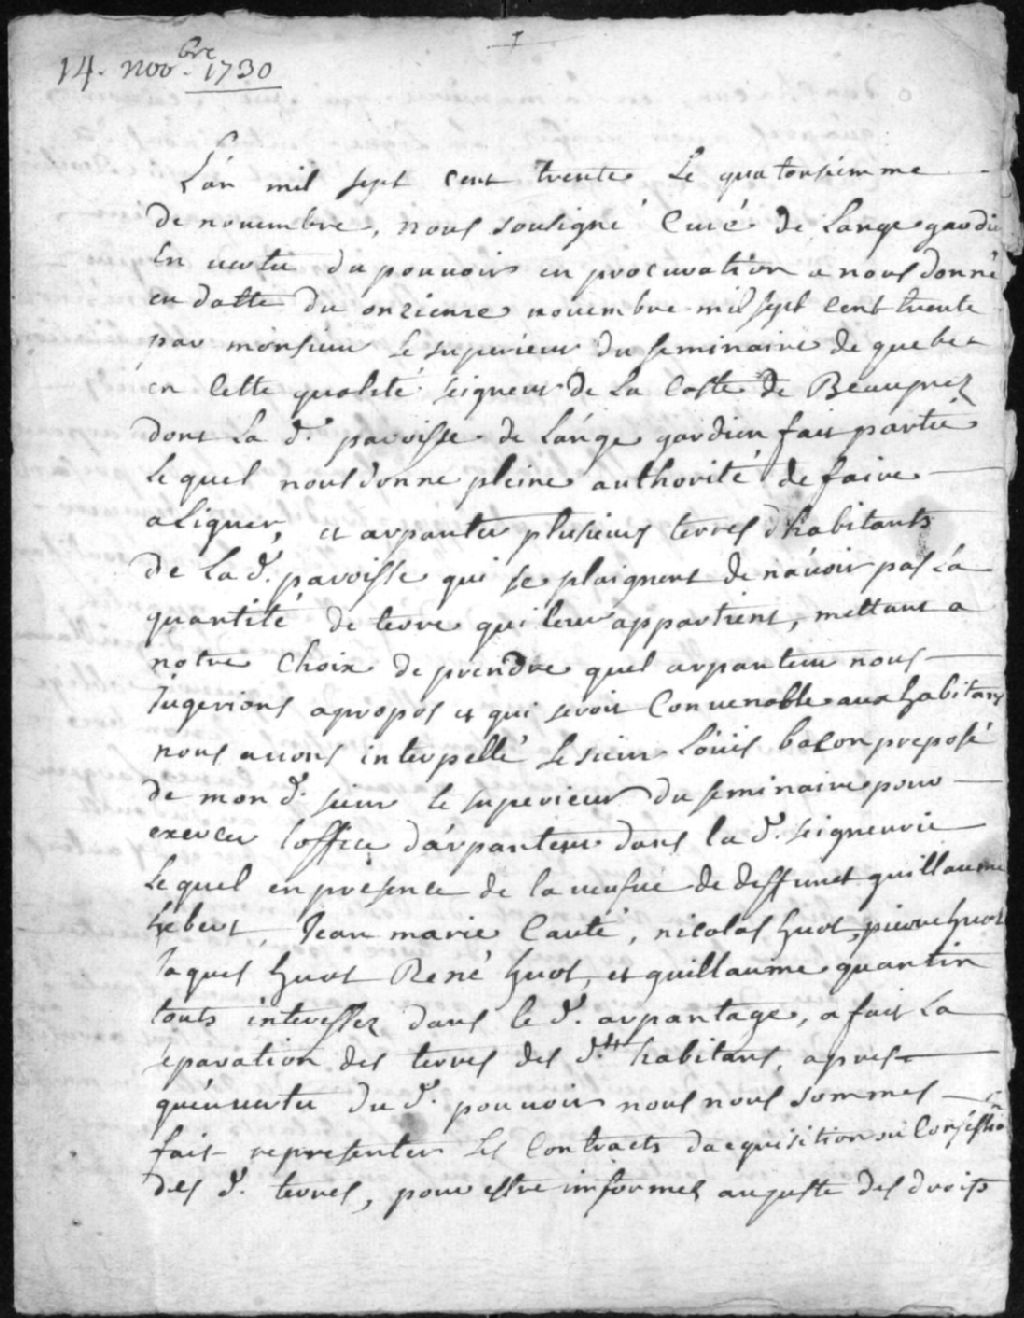 1
14. nov.bre 1730
L'an mil sept cent trente Le quatorsiemme
de novembre, nous sousigné Curé de Lange gardi
En vertu du pouvoir en procuration a nous donné
en datte du onzieme novembre mil sept cent trente
par monsieur Le superieur du seminaire de quebec
en Cette qualité seigneur de La Coste de Beaupréz
dont La d. paroisse de L'ange gardien fait partie
Le quel nous donne pleine authorité de faire
aLigner, et arpanter plusieurs terres d'habitants
de La d. paroisse qui se plaignent de n'avoir pas La
quantité de terre qui leur appartient, mettant a
notre Choix de prendre quel arpanteur nous
Jugerions apropos et qui seroit Convenable aux habitans
nous avons interpellé Le sieur Loüis bacon preposé
de mon d. sieur le superieur du seminaire pour
exercer l'office d'arpanteur dans la d. seigneurie
Lequel en presence de la veufve de deffunct guillaume
hebert Jean marie Cauté, nicolas huot, pierre huot
Jaques huot René huot, et guillaume quantin
touts interessez dans le d. arpantage, a fait La
separation des terres des d.ts habitans apres
qu'en vertu du d. pouvoir nous nous sommes
fait representer Les Contracts d'acquisition ou Concession
des d. terres, pour estre informez au juste des droits